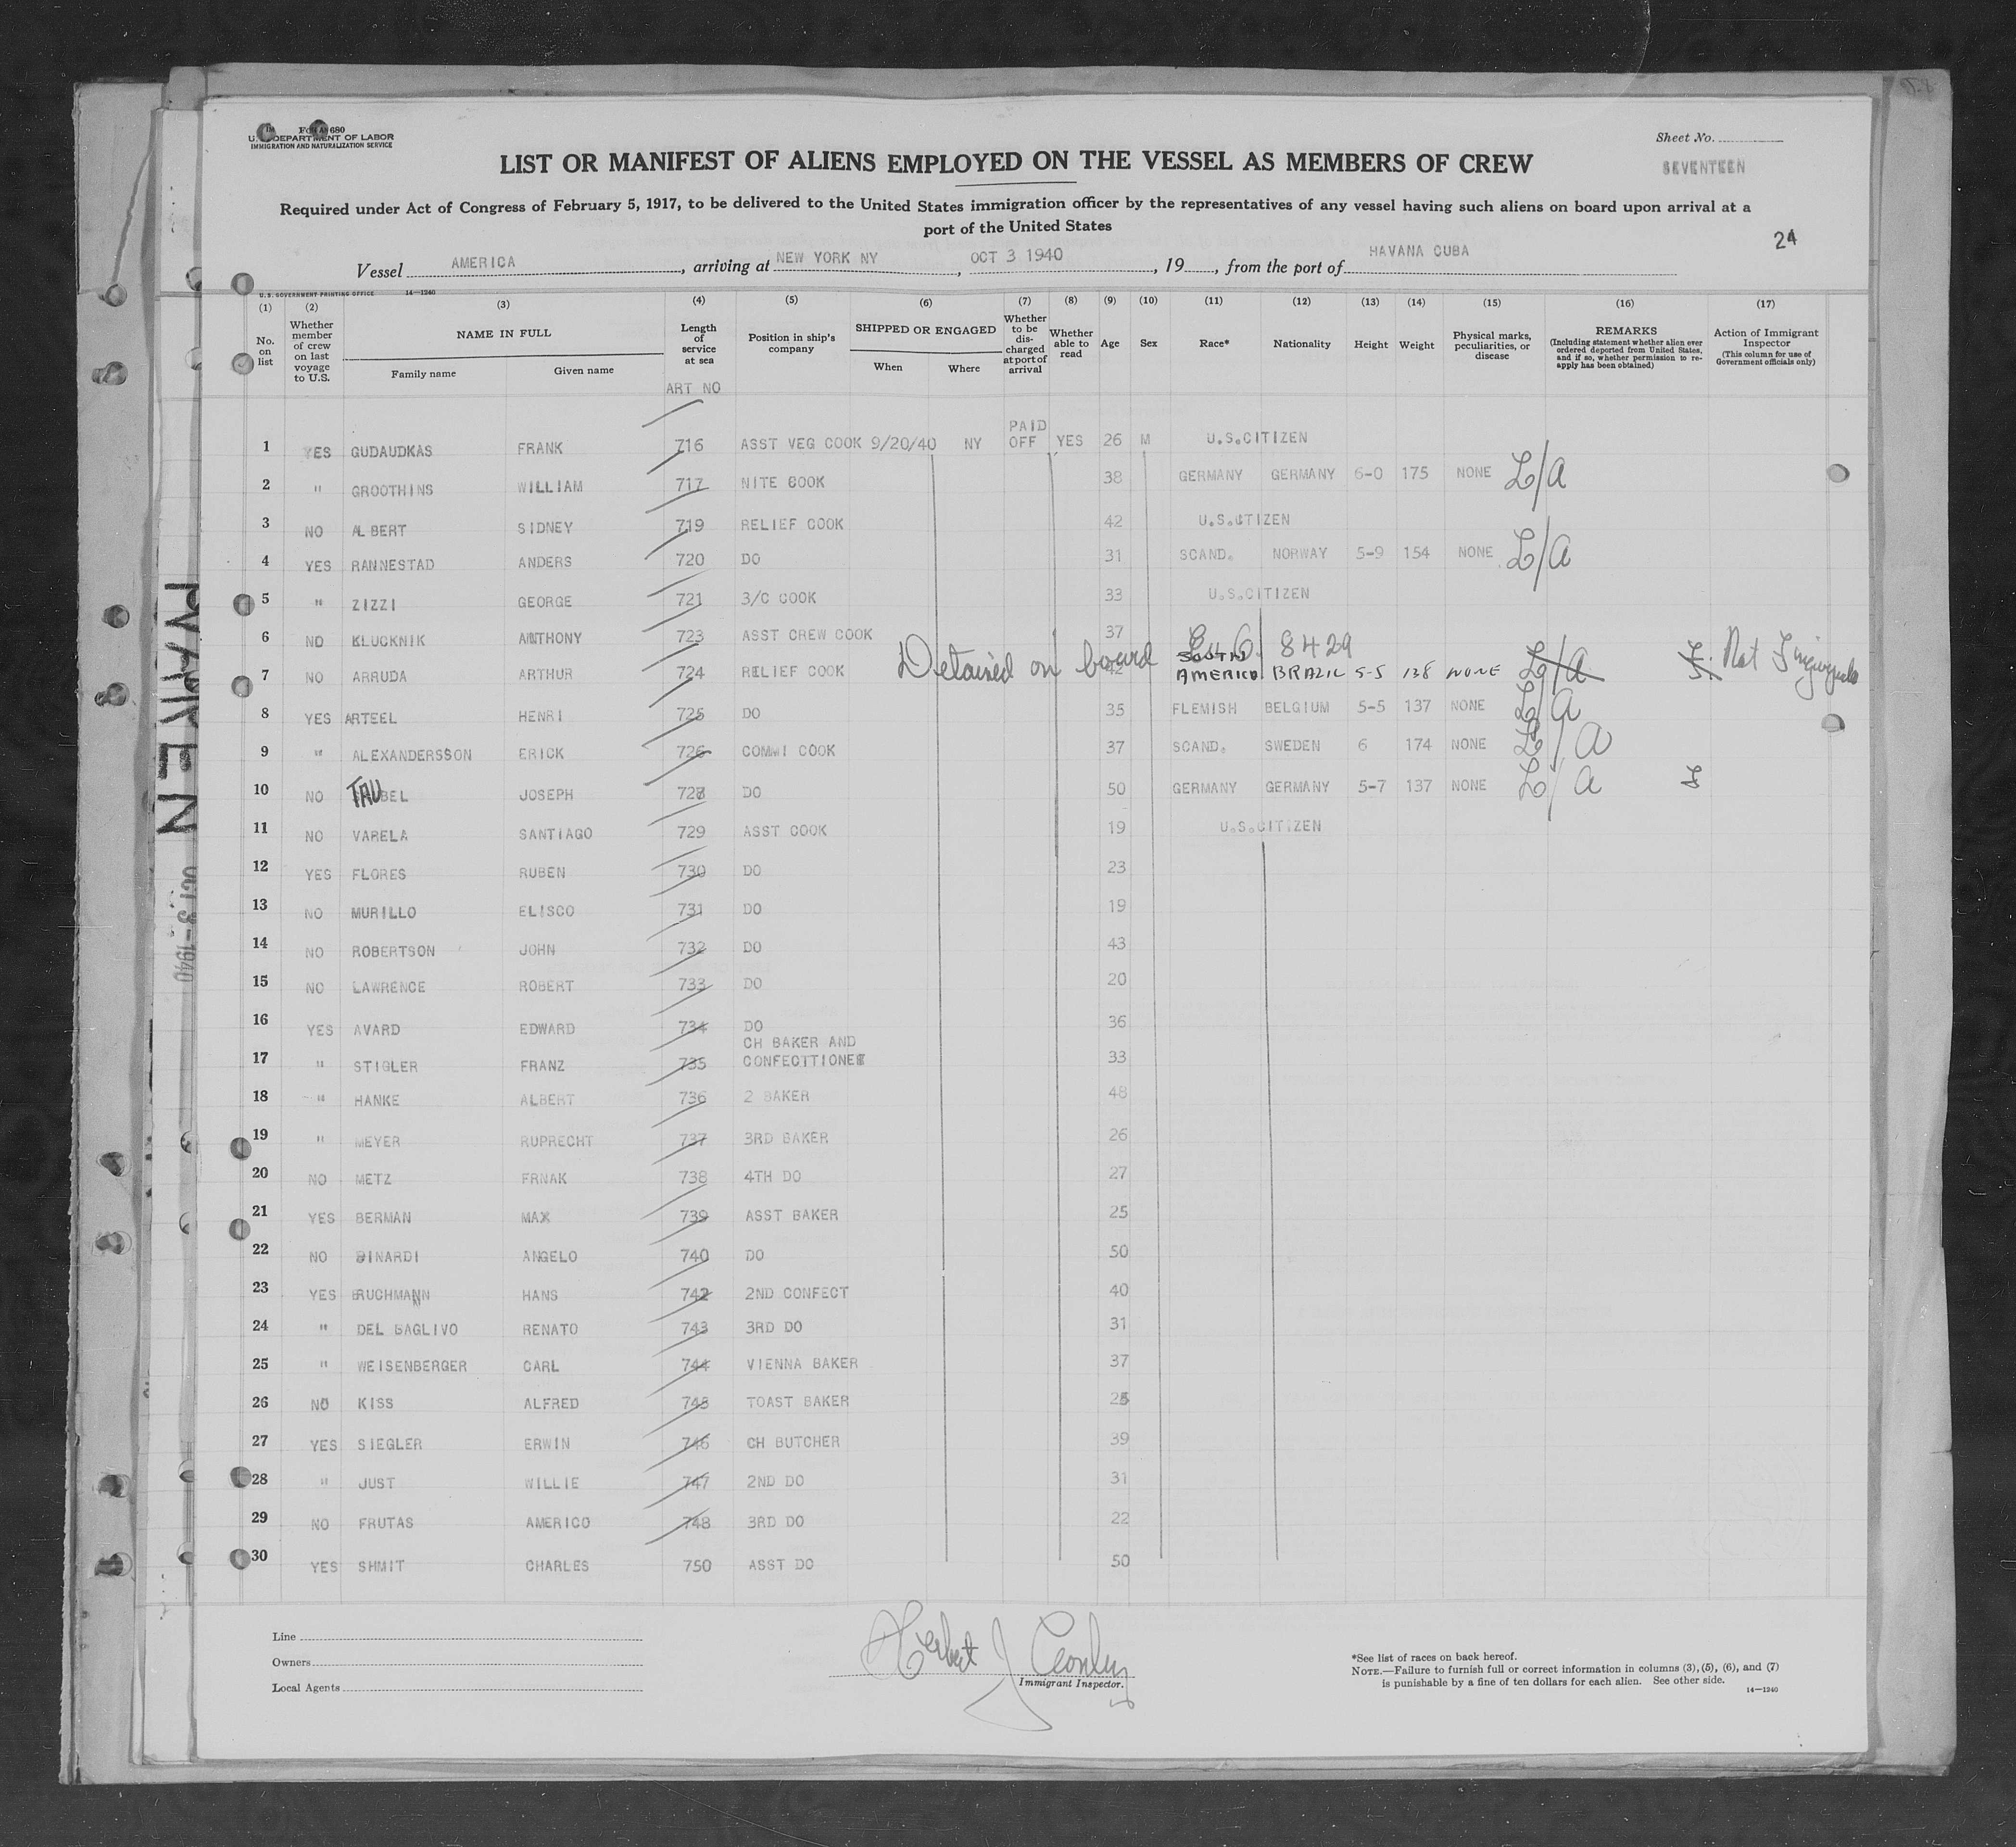 Form 680
U. S. DEPARTMENT OF LABOR
IMMIGRATION AND NATURALIZATION SERVICE
Sheet No.
SEVENTEEN
LIST OR MANIFEST OF ALIENS EMPLOYED ON THE VESSEL AS MEMBERS OF CREW
Required under Act of Congress of February 5, 1917, to be delivered to the United States immigration officer by the representatives of any vessel having such aliens on board upon arrival at a
port of the United States
24
Vessel AMERICA, arriving at NEW YORK NY, OCT 3 1940, 19, from the port of HAVANA CUBA
U. S. GOVERNMENT PRINTING OFFICE 14—1240
(1) (2) (3) (4) (5) (6) (7) (8) (9) (10) (11) (12) (13) (14) (15) (16) (17)
No. on list
Whether member of crew on last voyage to U.S.
NAME IN FULL
Family name Given name
Length of service at sea
ART NO
Position in ship's company
SHIPPED OR ENGAGED
When Where
Whether to be discharged at port of arrival
Whether able to read
Age Sex Race* Nationality Height Weight
Physical marks, peculiarities, or disease
REMARKS
(Including statement whether alien ever ordered deported from United States, and if so, whether permission to reapply has been obtained)
Action of Immigrant Inspector
(This column for use of Government officials only)
1 YES GUDAUDKAS FRANK 716 ASST VEG COOK 9/20/40 NY PAID OFF YES 26 M U.S.CITIZEN
2 " GROOTHINS WILLIAM 717 NITE COOK 38 GERMANY GERMANY 6-0 175 NONE L/A
3 NO ALBERT SIDNEY 719 RELIEF COOK 42 U.S.CTIZEN
4 YES RANNESTAD ANDERS 720 DO 31 SCAND. NORWAY 5-9 154 NONE L/A
5 " ZIZZI GEORGE 721 3/C COOK 33 U.S.CITIZEN
6 NO KLUCKNIK ANTHONY 723 ASST CREW COOK 37
Detained on board 8429
7 NO ARRUDA ARTHUR 724 RELIEF COOK 42 SOUTH AMERICA BRAZIL 5-5 138 NONE L/A Not
8 YES ARTEEL HENRI 725 DO 35 FLEMISH BELGIUM 5-5 137 NONE L/A
9 " ALEXANDERSSON ERICK 726 COMMI COOK 37 SCAND. SWEDEN 6 174 NONE L/A
10 NO TAUBEL JOSEPH 728 DO 50 GERMANY GERMANY 5-7 137 NONE L/A
11 NO VARELA SANTIAGO 729 ASST COOK 19 U.S.CITIZEN
12 YES FLORES RUBEN 730 DO 23
13 NO MURILLO ELISCO 731 DO 19
14 NO ROBERTSON JOHN 732 DO 43
15 NO LAWRENCE ROBERT 733 DO 20
16 YES AVARD EDWARD 734 DO 36
17 " STIGLER FRANZ 735 CH BAKER AND CONFECTTIONER 33
18 " HANKE ALBERT 736 2 BAKER 48
19 " MEYER RUPRECHT 737 3RD BAKER 26
20 NO METZ FRNAK 738 4TH DO 27
21 YES BERMAN MAX 739 ASST BAKER 25
22 NO DINARDI ANGELO 740 DO 50
23 YES BRUCHMANN HANS 742 2ND CONFECT 40
24 " DEL GAGLIVO RENATO 743 3RD DO 31
25 " WEISENBERGER CARL 744 VIENNA BAKER 37
26 NO KISS ALFRED 745 TOAST BAKER
27 YES SIEGLER ERWIN 746 CH BUTCHER 39
28 " JUST WILLIE 747 2ND DO 31
29 NO FRUTAS AMERICO 748 3RD DO 22
30 YES SHMIT CHARLES 750 ASST DO 50
Line
Owners
Local Agents
Herbert J Conley
Immigrant Inspector.
*See list of races on back hereof.
NOTE.—Failure to furnish full or correct information in columns (3), (5), (6), and (7)
is punishable by a fine of ten dollars for each alien. See other side.
14—1240
OCT 3-1940